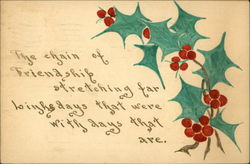 The chain of
Friendship
stretching far
links days that were
with days that
are.